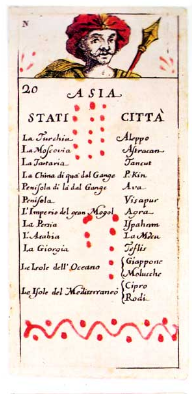 N
20
ASIA
STATI CITTÀ
La Turchia Aleppo
La Moscovia Astracan
La Tartaria Tancut
La China di quà dal Gange P.Kin
Penisola di là dal Gange Ava
Penisola Visapur
L'Imperio del gran Mogol Agra
La Persia Ispaham
L'Arabia La Meca
La Giorgia Teflis
Le Isole dell'Oceano Giappone
Molucche
Le Isole del Mediterraneo Cipro
Rodi.